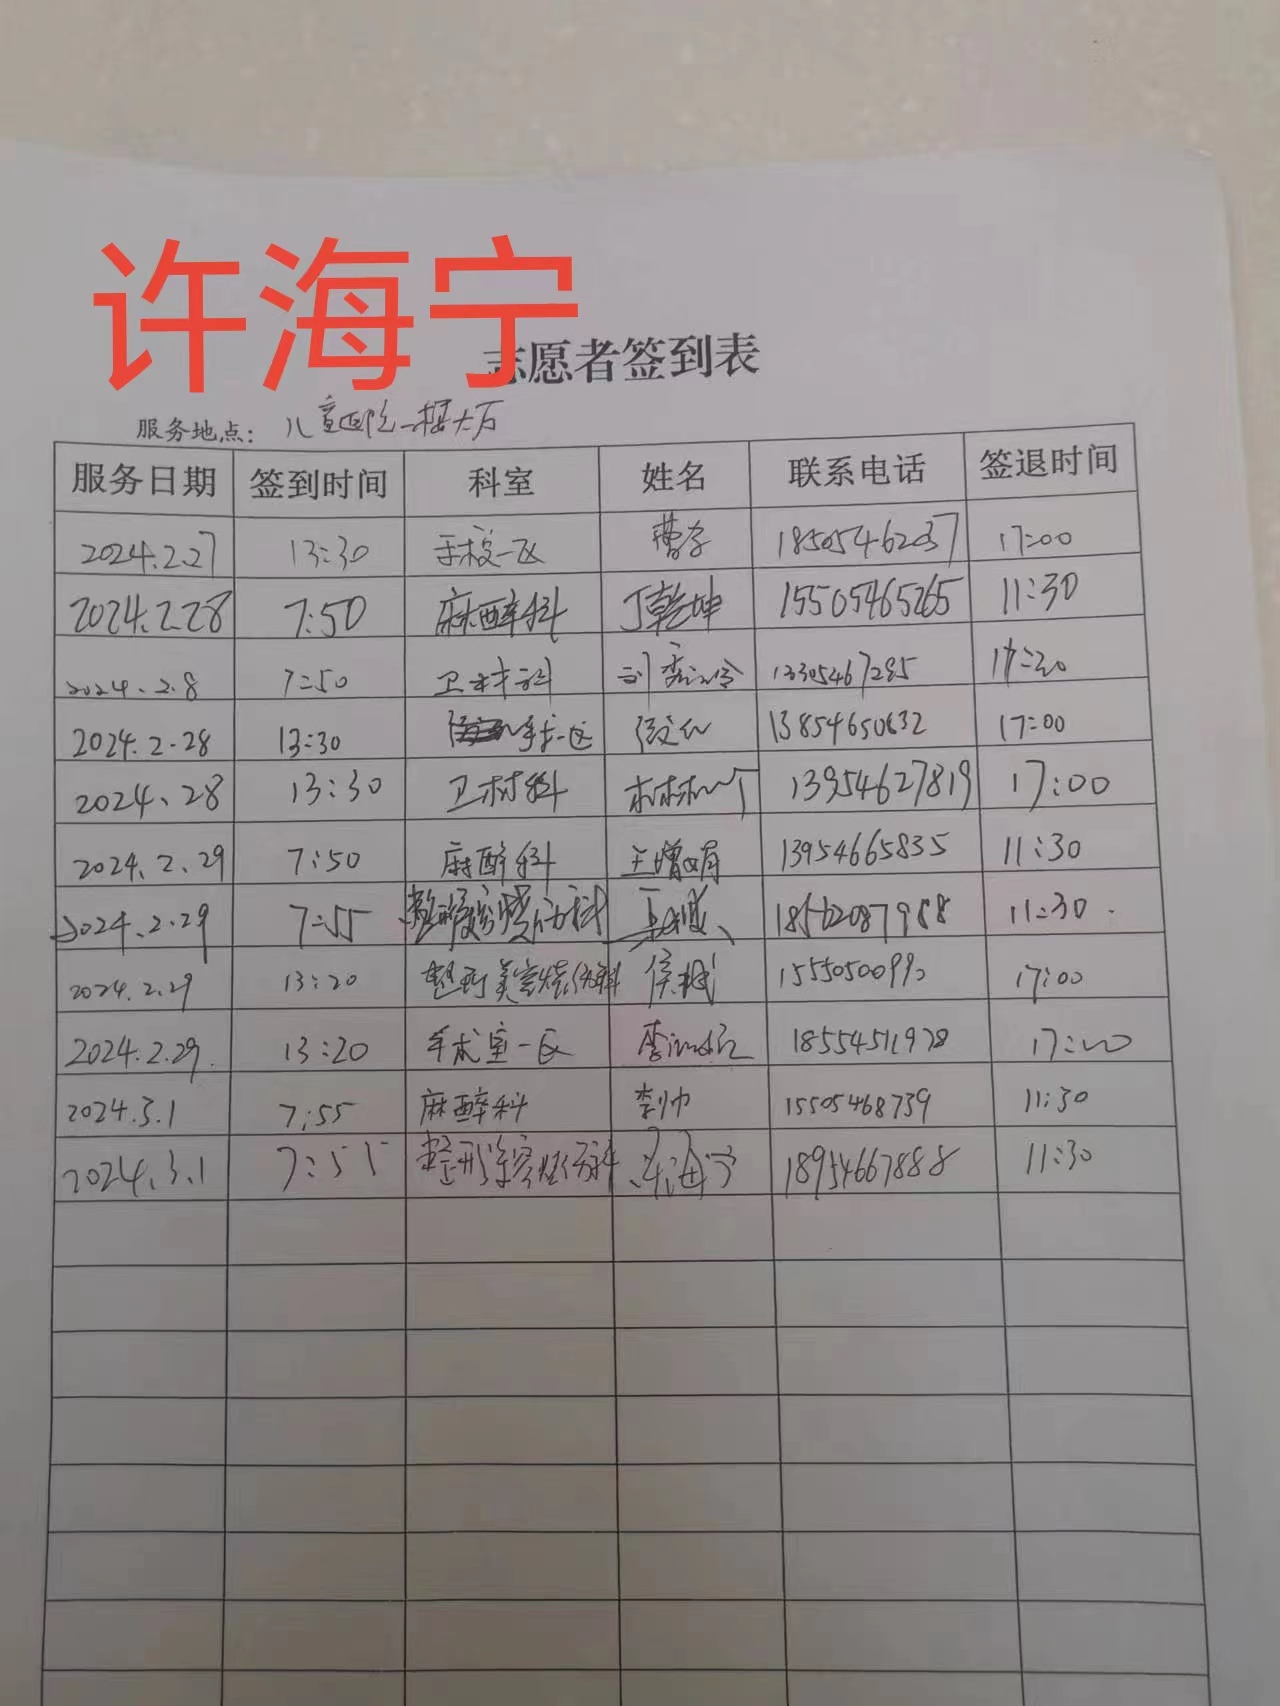 许海宁
志愿者签到表
服务地点: 儿童医院一楼大厅
服务日期 签到时间 科室 姓名 联系电话 签退时间
2024.2.27 13:30 手术一区 曹 18505462037 17:00
2024.2.28 7:50 麻醉科 丁乾坤 15505465265 11:30
2024.2.8 7:50 卫材科 刘 13305467285
2024.2.28 13:30 手术一区 13854650632 17:00
2024.28 13:30 卫材科 13954627819 17:00
2024.2.29 7:50 麻醉科 王增娟 13954665835 11:30
2024.2.29 7:55 11:30.
2024.2.29 13:20 整形美容烧伤科 17:00
2024.2.29. 13:20 手术室一区 李 17:00
2024.3.1 7:55 麻醉科 李帅 15505468739 11:30
2024.3.1 7:55 整形美容烧伤科 许海宁 18954667888 11:30